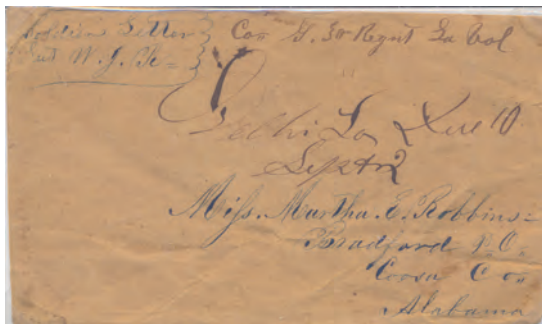 Soldiers Letter } Co. G. 30 Regnt La Vol
W. J.
Delhi La Due 10
Sept 2
Miss. Martha. E. Robbins=
Bradford P. O.
Coosa Co
Alabama